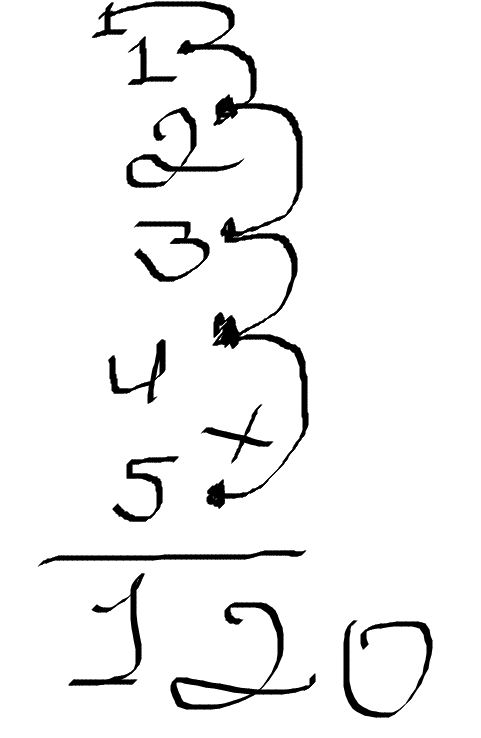 1
1
2
3
4
×
5
120